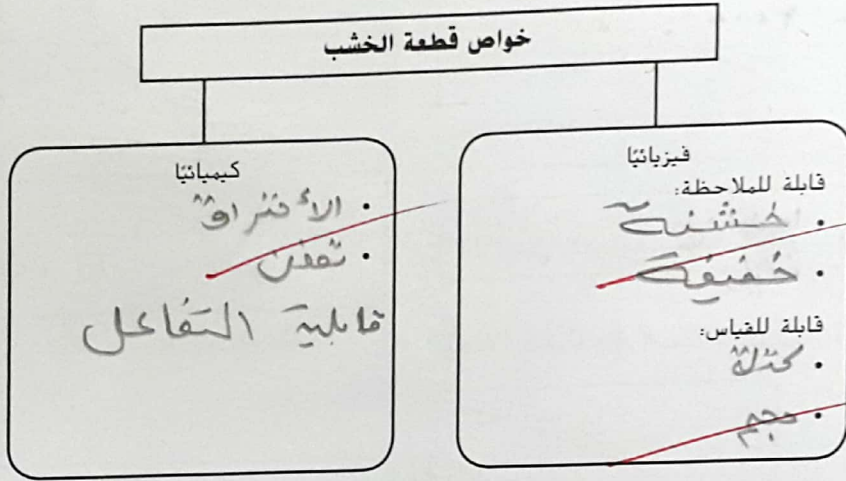 خواص قطعة الخشب
فيزيائيًا
قابلة للملاحظة:
• خشنة
• خفيفة
قابلة للقياس:
• كتلة
• حجم
كيميائيًا
• الأحتراق
• تعفن
قابلية التفاعل